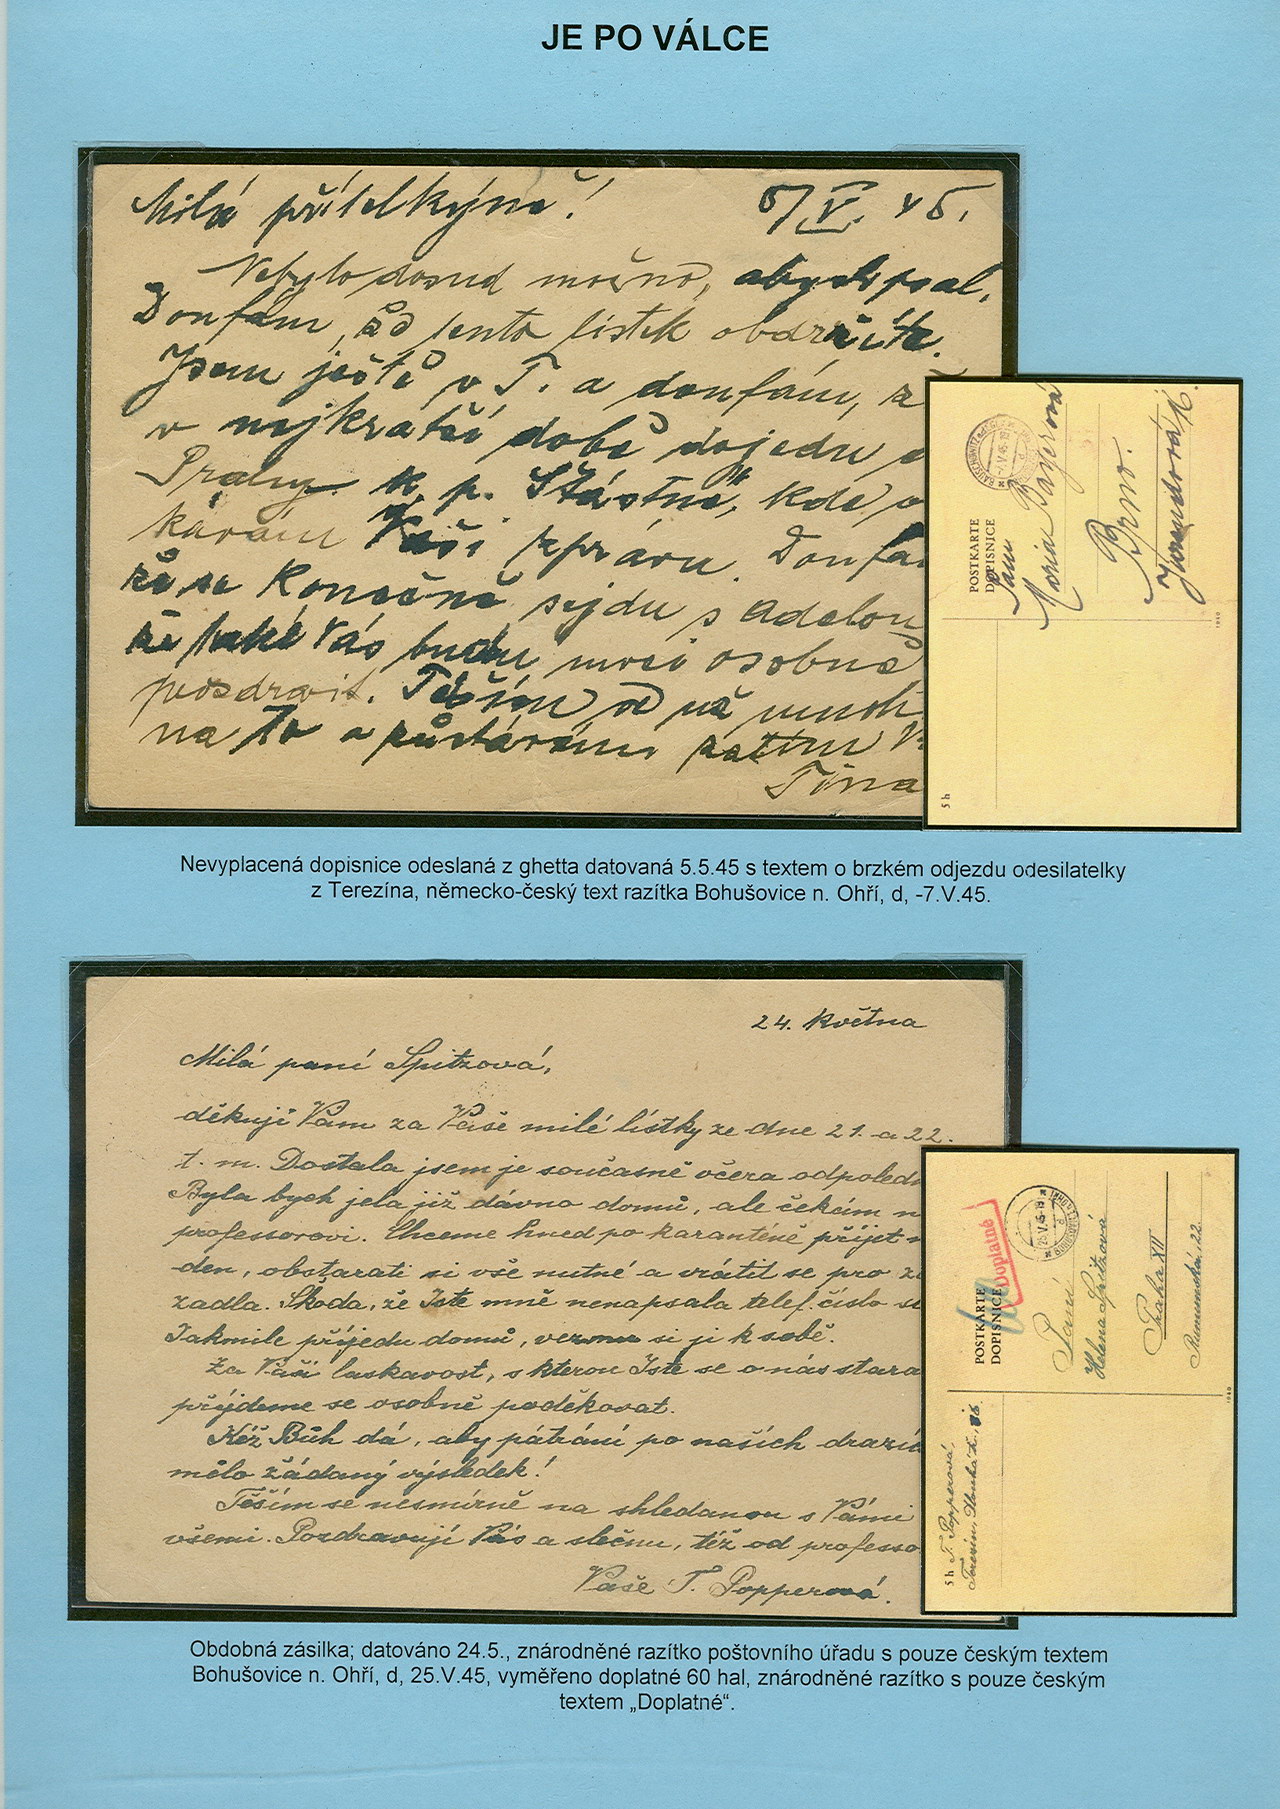 JE PO VÁLCE
Milá přítelkyně! 5/V. 45.
Nebylo dosud možno, abych psal.
Doufám, že tento lístek obdržíte.
Jsem ještě v T. a doufám, ž
v nejkratší době dojedu d
Prahy k p. Šťastné, kde o
kávám Vaši zprávu. Doufá
že se konečně sejdu s Adelou
že také Vás budu moci osobně
pozdravit. Těším se už mnoh
na To a zůstávám zatím V
Tina
POSTKARTE
DOPISNICE
Paní
Maria Bayerová
Brno.
5 h
Nevyplacená dopisnice odeslaná z ghetta datovaná 5.5.45 s textem o brzkém odjezdu odesilatelky
z Terezína, německo-český text razítka Bohušovice n. Ohří, d, -7.V.45.
24. května
Milá paní Spitzová,
děkuji Vám za Vaše milé lístky ze dne 21. a 22.
t. m. Dostala jsem je současně včera odpoledn
Byla bych jela již dávno domů, ale čekám n
professorovi. Chceme hned po karanténě přijet n
den, obstarati si vše nutné a vrátit se pro z
zadla. Škoda, že Jste mně nenapsala telef. číslo s
Jakmile přijedu domů, vezmu si ji k sobě.
Za Vaši laskavost, s kterou Jste se o nás stara
přijdeme se osobně poděkovat.
Kéž Bůh dá, aby pátrání po našich drazí
mělo žádaný výsledek!
Těším se nesmírně na shledanou s Vámi
všemi. Pozdravuji Vás a slečnu, též od professo
Vaše T. Popperová.
POSTKARTE
DOPISNICE
Doplatné
25.V.45-18
Paní
Helena Spitzová
Praha XII
Rumunská 22.
5 h
T. Popperová
Terezín,
Obdobná zásilka; datováno 24.5., znárodněné razítko poštovního úřadu s pouze českým textem
Bohušovice n. Ohří, d, 25.V.45, vyměřeno doplatné 60 hal, znárodněné razítko s pouze českým
textem „Doplatné“.